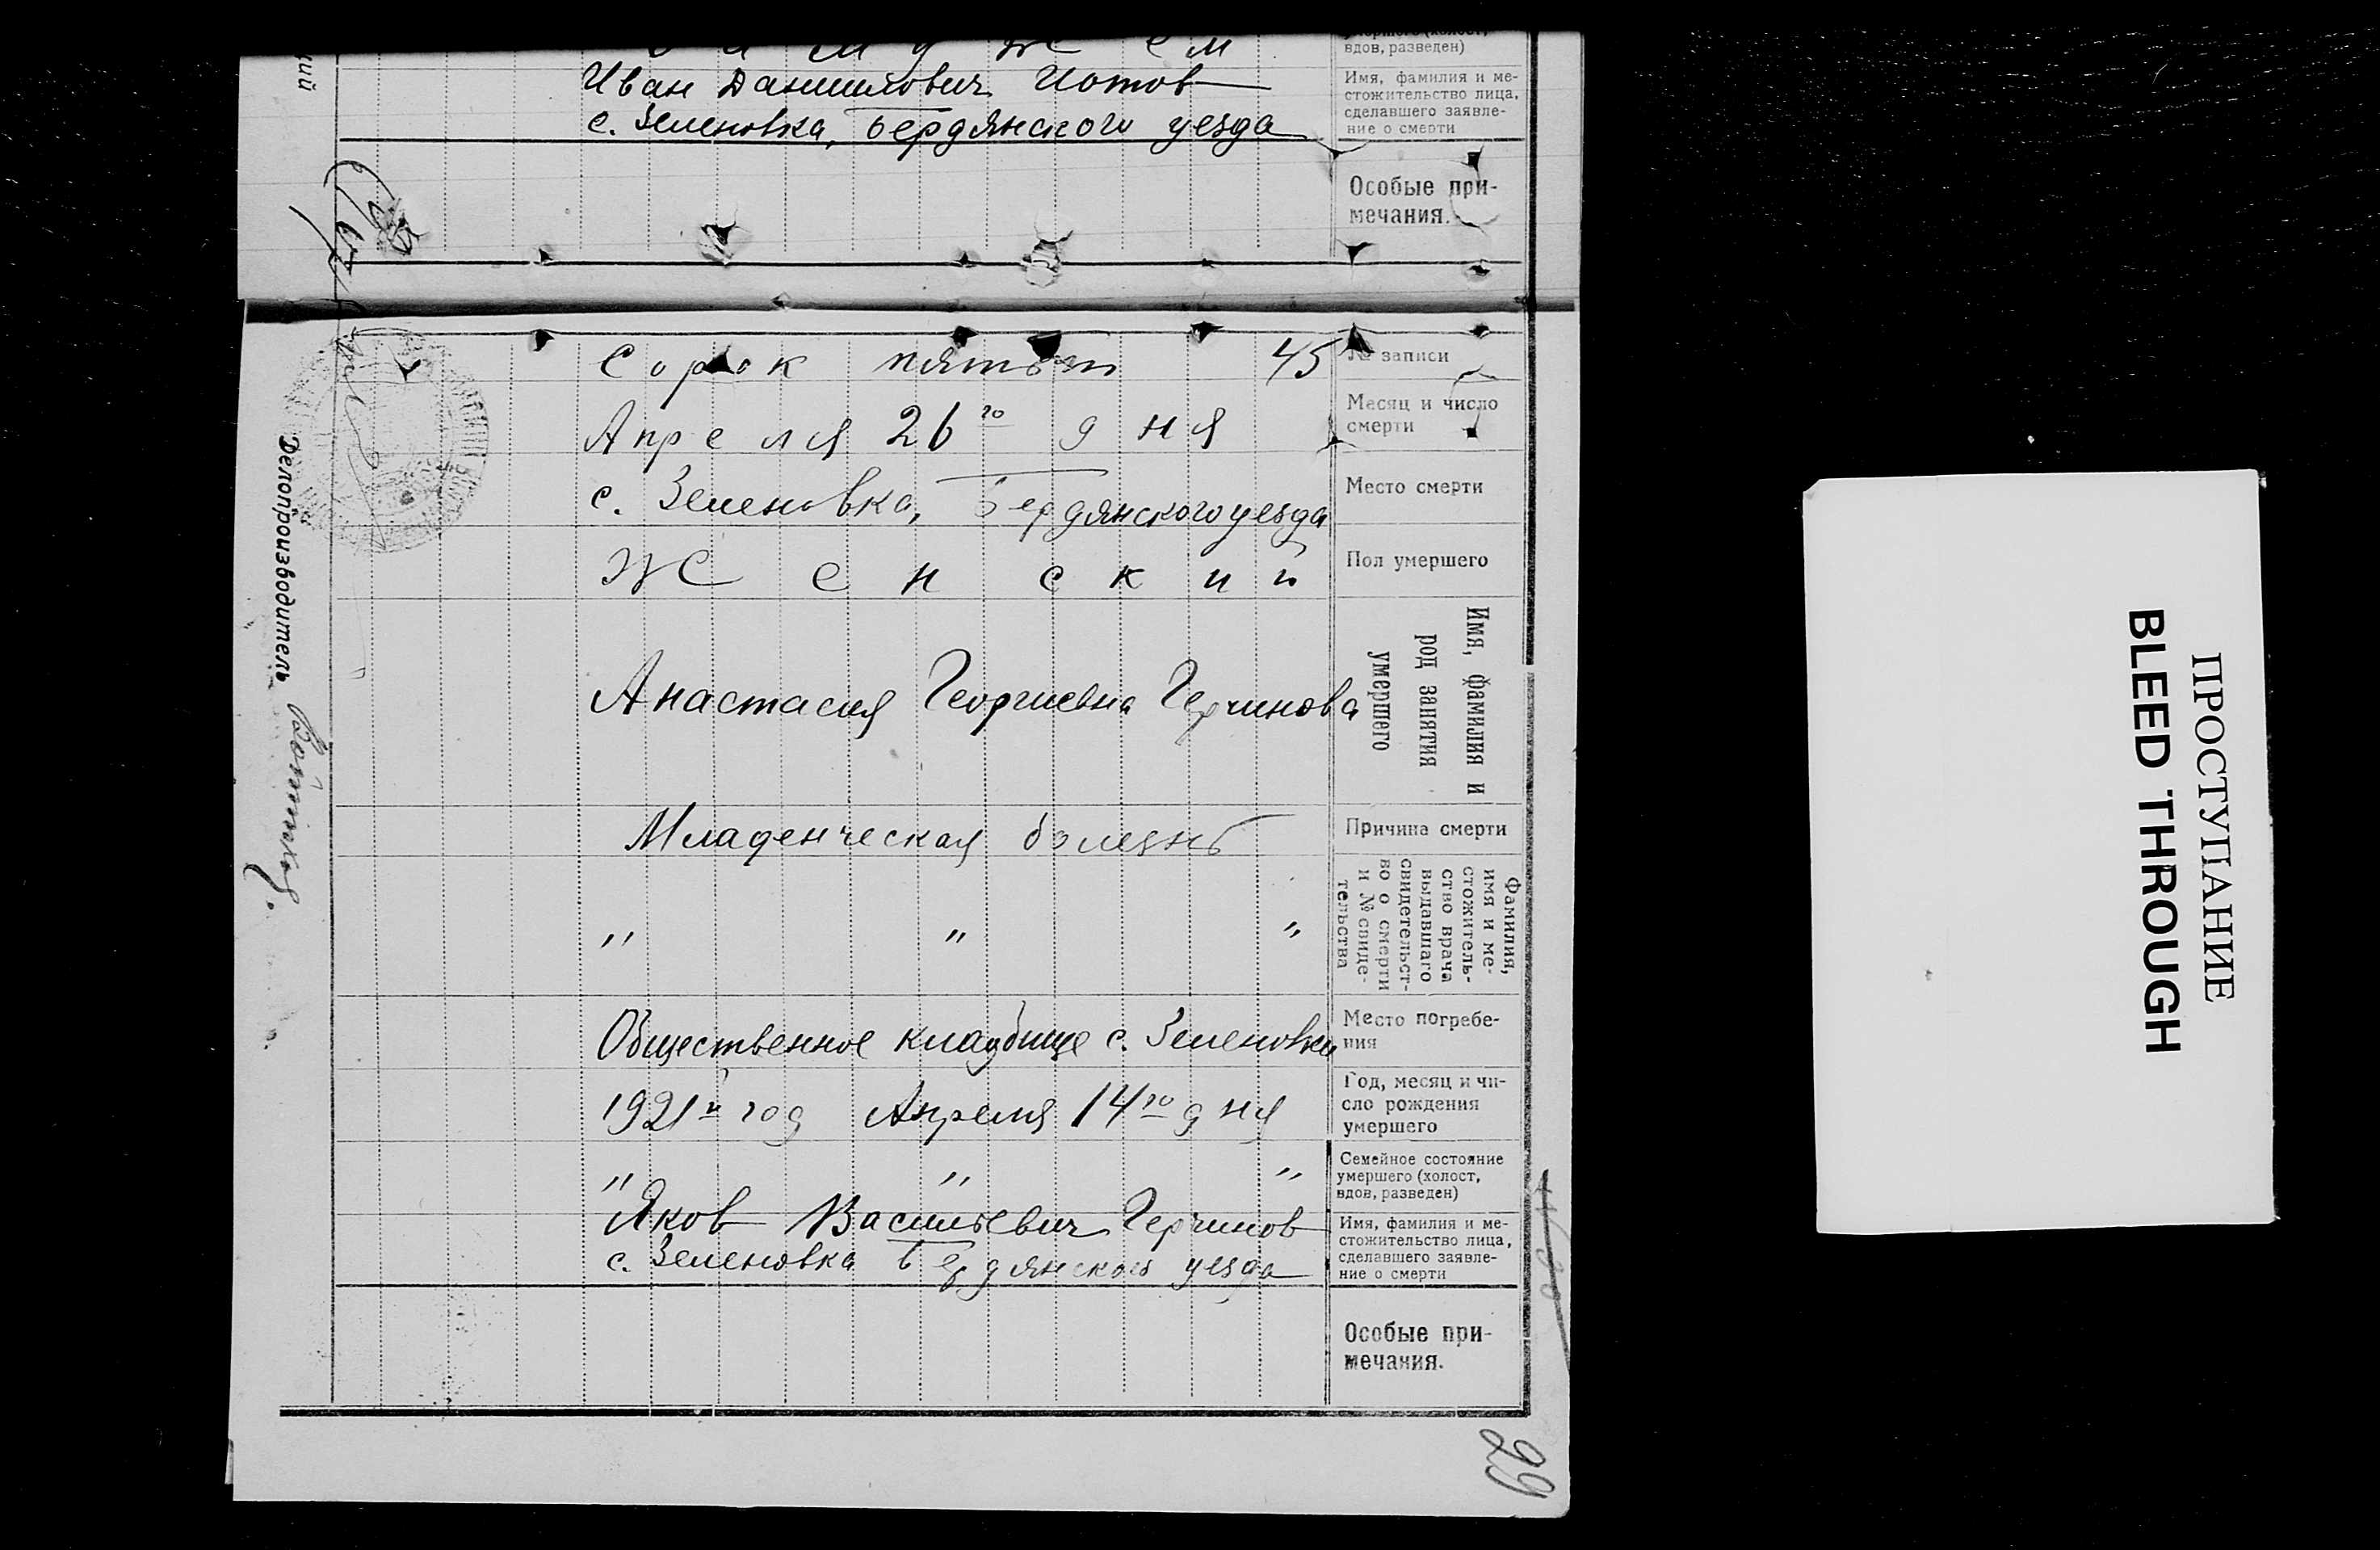 замужем
вдов, разведен)
Иван Данилович Иотов
с. Зеленовка, Бердянского уезда
Имя, фамилия и ме-
стожительство лица,
сделавшего заявле-
ние о смерти
Особые при-
мечания.
Сорок пятый 45
№ записи
Апреля 26го дня
Месяц и число
смерти
с. Зеленовка, Бердянского уезда
Место смерти
Женский
Пол умершего
Анастасия Георгиевна Герчинова
Имя, фамилия и
род занятия
умершего
Младенческая болезнь
Причина смерти
" " "
Фамилия,
имя и ме-
стожитель-
ство врача
выдавшаго
свидетельст-
во о смерти
и № свиде-
тельства
Общественное кладбище с. Зеленовки
Место погребе-
ния
1921й год Апреля 14го дня
Год, месяц и чи-
сло рождения
умершего
" " "
Семейное состояние
умершего (холост,
вдов, разведен)
Яков Васильевич Герчинов
с. Зеленовка Бердянского уезда
Имя, фамилия и ме-
стожительство лица,
сделавшего заявле-
ние о смерти
Особые при-
мечания.
Делопроизводитель
29
ПРОСТУПАНИЕ
BLEED THROUGH